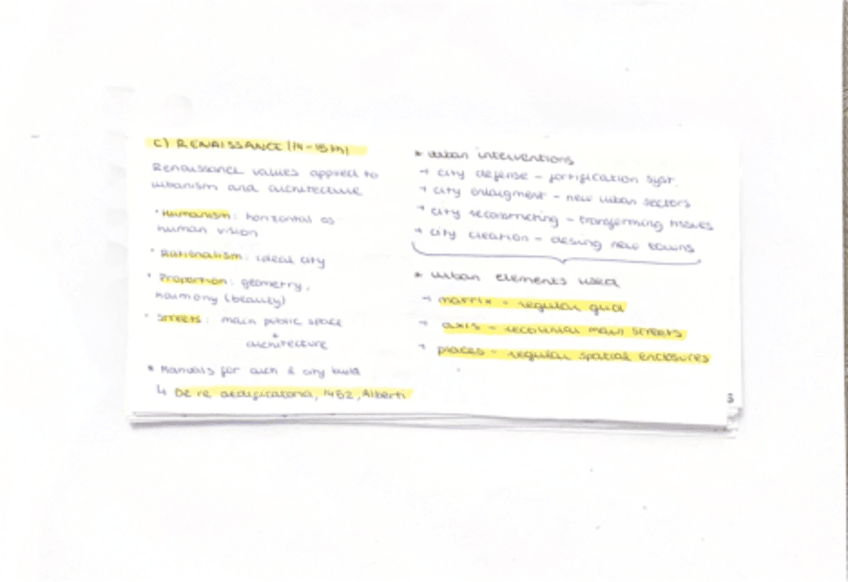 C) RENAISSANCE (14-15th)
Renaissance values applied to
urbanism and architecture
• Humanism: horizontal as
human vision
• Rationalism: ideal city
• Proportion: geometry,
harmony (beauty)
• Streets: main public space
+
architecture
* Manuals for arch & city build
↳ De re aedificatoria, 1452, Alberti
* urban interventions
→ city defense - fortification syst.
→ city enlargment - new urban sectors
→ city reconstructing - transforming tissues
→ city creation - desing new towns
* urban elements used
→ matrix = regular grid
→ axis = main streets
→ places = regular spatial enclosures